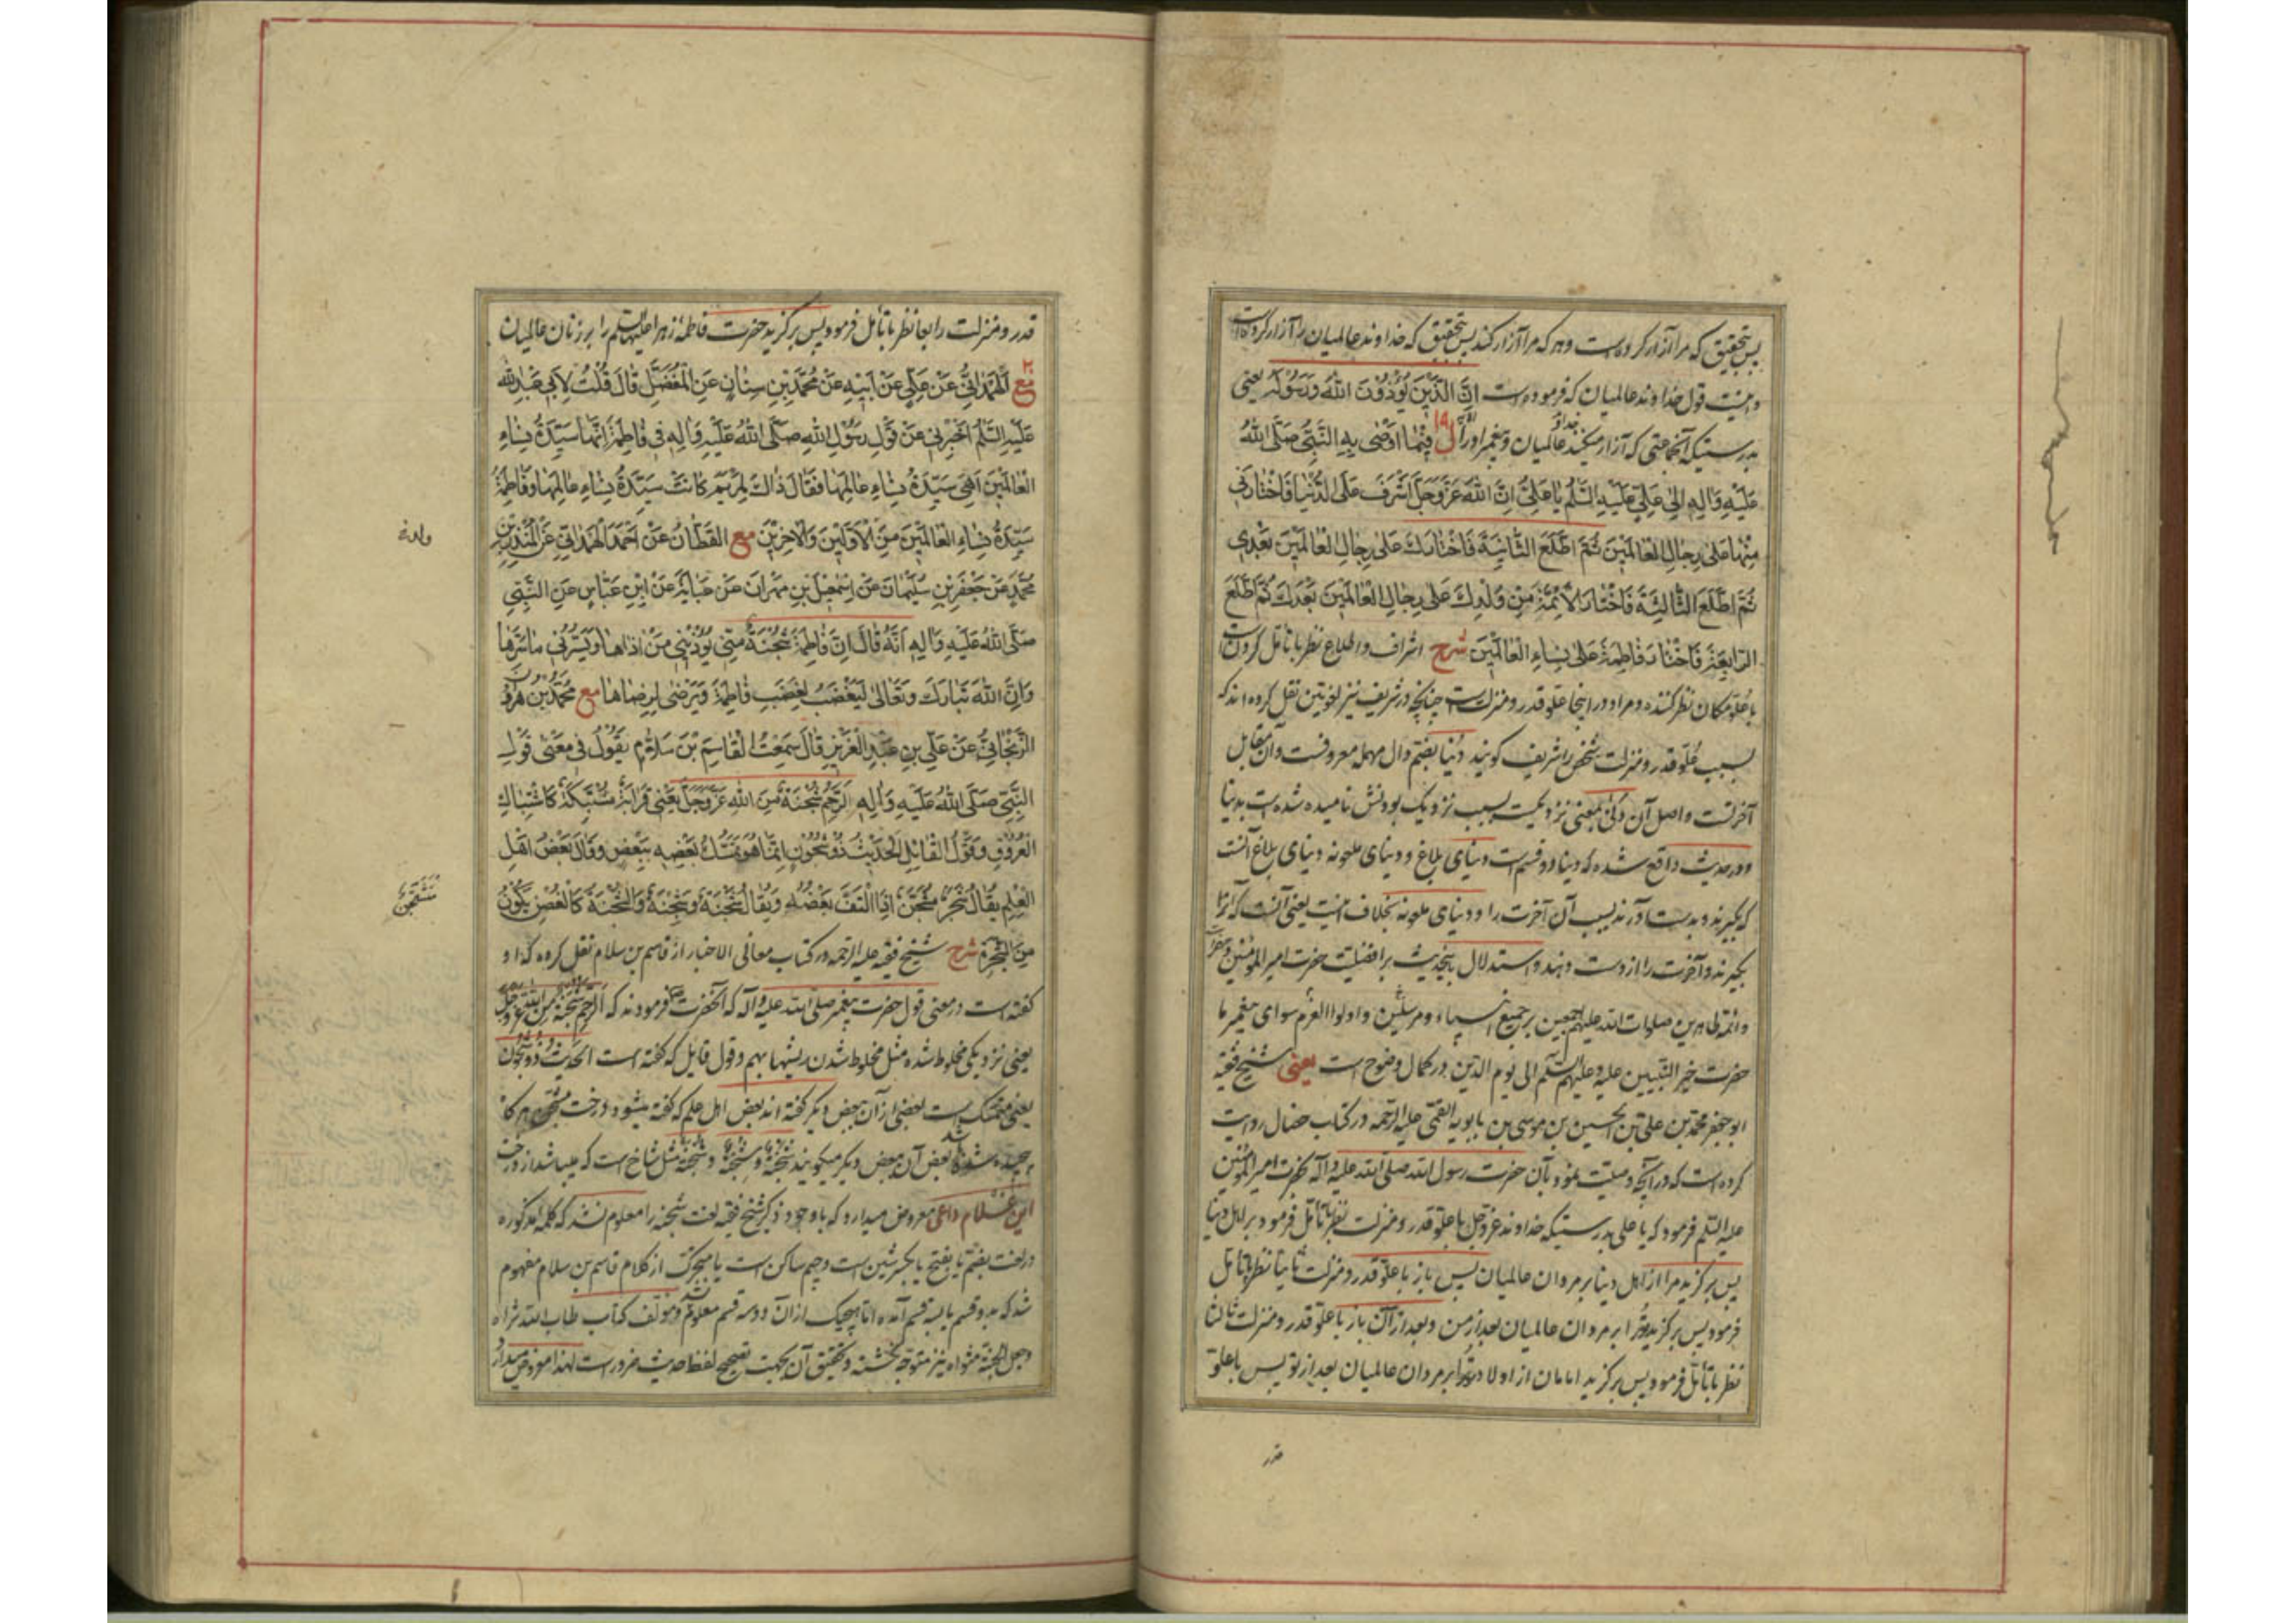 پس بتحقیق که مرا آزار کرده است و هر که مرا آزار کند پس بتحقیق که خداوند عالمیان را آزار کرده است
و اینست قول خداوند عالمیان که فرموده است اِنَّ الَّذینَ یُؤْذُونَ اللهَ وَرَسُولَهُ یعنی
بدرستیکه آنجماعتی که آزار میکنند خداوند عالمیان و پیغمبر او را ل فیما اَوْصی بِهِ النَّبِیُّ صَلَّی اللهُ
عَلَیْهِ وَآلِهِ اِلی عَلِیٍّ عَلَیْهِ السَّلَمُ یا عَلِیُّ اِنَّ اللهَ عَزَّوَجَلَّ اَشْرَفَ عَلَی الدُّنْیا فَاخْتارَنی
مِنْها عَلی رِجالِ الْعالَمینَ ثُمَّ اطَّلَعَ الثّانِیَةَ فَاخْتارَكَ عَلی رِجالِ الْعالَمینَ بَعْدی
ثُمَّ اطَّلَعَ الثّالِثَةَ فَاخْتارَ الْاَئِمَّةَ مِنْ وُلْدِكَ عَلی رِجالِ الْعالَمینَ بَعْدَكَ ثُمَّ اطَّلَعَ
الرّابِعَةَ فَاخْتارَ فاطِمَةَ عَلی نِساءِ الْعالَمینَ شرح اشراف و اطلاع نظر با تأمل کردنست
با علو مکان نظر کننده و مراد در اینجا علو قدر و منزلت است چنانچه در شریف نیز لغویین نقل کرده اند که
بسبب علو قدر و منزلت شخص را شریف کویند دنیا بضم دال مهمله معروفست و آن مقابل
آخرتست و اصل آن دنی بمعنی نزدیکیست بسبب نزدیک بودنش نامیده شده است بدنیا
و در حدیث واقع شده که دنیا دو قسم است دنیای بلاغ و دنیای ملعونه دنیای بلاغ آنست
که بگیرند و بدست آورند بسبب آن آخرت را و دنیای ملعونه بخلاف اینست یعنی آنست که آنرا
بگیرند و آخرت را از دست دهند و استدلال باینحدیث بر افضلیت حضرت امیر المؤمنین
و ائمه طاهرین صلوات الله علیهم اجمعین بر جمیع انبیاء و مرسلین و اولوا العزم سوای پیغمبر ما
حضرت خیر النبیین علیه و علیهم السلم الی یوم الدین در کمال وضوح است یعنی شیخ فقیه
ابو جعفر محمد بن علی بن الحسین بن موسی بن بابویه القمی علیه الرحمه در کتاب خصال روایت
کرده است که در آنچه وصیت نمود بآن حضرت رسول الله صلی الله علیه و آله بحضرت امیر المؤمنین
علیه السلم فرمود که یا علی بدرستیکه خداوند عز و جل با علو قدر و منزلت نظر با تأمل فرمود بر اهل دنیا
پس برگزید مرا از اهل دنیا بر مردان عالمیان پس باز با علو قدر و منزلت ثانیا نظر با تأمل
فرمود پس برگزید تو را بر مردان عالمیان بعد از من و بعد از آن باز با علو قدر و منزلت ثالثا
نظر با تأمل فرمود پس برگزید امامان از اولاد تو را بر مردان عالمیان بعد از تو پس با علو
قدر
قدر و منزلت رابعا نظر با تأمل فرمود پس برگزید حضرت فاطمه زهرا علیها السلم را بر زنان عالمیان
مع الْهَمَدانِیُّ عَنْ عَلِیٍّ عَنْ اَبیهِ عَنْ مُحَمَّدِ بْنِ سِنانٍ عَنِ الْمُفَضَّلِ قالَ قُلْتُ لِاَبی عَبْدِ الله
عَلَیْهِ السَّلَمُ اَخْبِرْنی عَنْ قَوْلِ رَسُولِ اللهِ صَلَّی اللهُ عَلَیْهِ وَآلِهِ فی فاطِمَةَ اِنَّها سَیِّدَةُ نِساءِ
الْعالَمینَ اَهِیَ سَیِّدَةُ نِساءِ عالَمِها فَقالَ ذاكَ لِمَرْیَمَ کانَتْ سَیِّدَةَ نِساءِ عالَمِها وَفاطِمَةُ
سَیِّدَةُ نِساءِ الْعالَمینَ مِنَ الْاَوَّلینَ وَالْآخِرینَ مع الْقَطّانُ عَنْ اَحْمَدَ الْهَمَدانِیِّ عَنِ الْمُنْذِرِ بْنِ
مُحَمَّدٍ عَنْ جَعْفَرِ بْنِ سُلَیْمانَ عَنْ اِسْمعیلَ بْنِ مِهْرانَ عَنْ عَبایَةَ عَنِ ابْنِ عَبّاسٍ عَنِ النَّبِیِّ
صَلَّی اللهُ عَلَیْهِ وَآلِهِ اَنَّهُ قالَ اِنَّ فاطِمَةَ شُجْنَةٌ مِنّی یُؤْذینی مَنْ آذاها وَیَسُرُّنی ماسَرَّها
وَاِنَّ اللهَ تَبارَكَ وَتَعالی لَیَغْضَبُ لِغَضَبِ فاطِمَةَ وَیَرْضی لِرِضاها مع مُحَمَّدُ بْنُ هرُونَ
الزَّنْجانِیُّ عَنْ عَلِیِّ بْنِ عَبْدِ الْعَزیزِ قالَ سَمِعْتُ الْقاسِمَ بْنَ سَلاّمٍ یَقُولُ فی مَعْنی قَوْلِ
النَّبِیِّ صَلَّی اللهُ عَلَیْهِ وَآلِهِ اَلرَّحِمُ شُجْنَةٌ مِنَ اللهِ عَزَّوَجَلَّ یَعْنی قَرابَةٌ مُشْتَبِکَةٌ کَاشْتِباكِ
الْعُرُوقِ وَقَوْلُ الْقائِلِ الْحَدیثُ ذُو شُجُونٍ اِنَّما هُوَ تَمَسُّكُ بَعْضِهِ بِبَعْضٍ وَقالَ بَعْضُ اَهْلِ
الْعِلْمِ یُقالُ شَجَرٌ مُتَشَجِّنٌ اِذَا الْتَفَّ بَعْضُهُ وَیُقالُ شُجْنَةٌ وَشِجْنَةٌ وَالشُّجْنَةُ کَالْغُصْنِ یَکُونُ
مِنَ الشَّجَرَةِ شرح شیخ فقیه علیه الرحمه در کتاب معانی الاخبار از قاسم بن سلام نقل کرده که او
کفته است در معنی قول حضرت پیغمبر صلی الله علیه و آله که آنحضرت فرمودند که اَلرَّحِمُ شُجْنَةٌ مِنَ اللهِ عَزَّوَجَلَّ
یعنی نزدیکی مخلوط شده مثل مخلوط شدن ریشها بهم و قول قایل که کفته است الْحَدیثُ ذُو شُجُونٍ
یعنی متمسک است بعضی از آن ببعض دیگر کفته اند بعض اهل علم که کفته میشود درخت متشجن هر کاه
پیچیده شده باشد بعض آن ببعض دیگر میکویند شُجْنَةٌ و شِجْنَةٌ و شُجْنَةٌ مثل شاخ است که میباشد از درخت
این غلام داعی معروض میدارد که با وجود ذکر شیخ فقیه لغت شجنه را معلوم نشد که کلمه مذکوره
در لغت بضم یا بفتح یا بکسر شین است و جیم ساکن است یا متحرک از کلام قاسم بن سلام مفهوم
شد که بدو قسم یا بسه قسم آمده اما هیچیک از آن دو سه قسم معلوم نشد و مؤلف کتاب طاب الله ثراه
و جعل الجنة مثواه نیز متوجه نگشته و تحقیق آن بجهت تصحیح لفظ حدیث ضرور است لهذا معروض میدارد